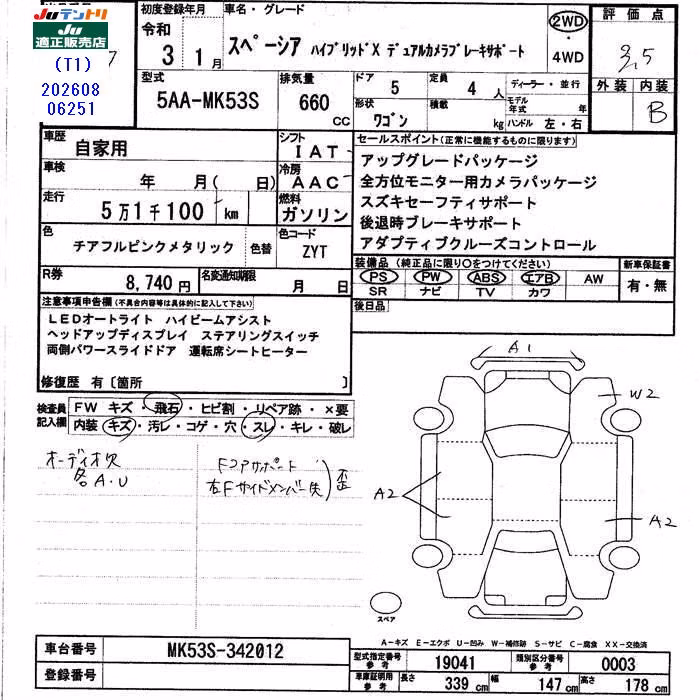 Juテントリ
Ju
適正販売店
(T1)
202608
06251
7
初度登録年月
令和
3 1月
車名・グレード
スペーシア ハイブリッドX デュアルカメラブレーキサポート
2WD
・
4WD
評価点
3.5
外装 内装
B
型式
5AA-MK53S
排気量
660
cc
ドア 5
定員 4 人
形状 ワゴン
積載 kg
ディーラー・並行
モデル年式 年
ハンドル 左・右
車歴
自家用
シフト
IAT
車検
年 月( 日)
冷房
AAC
走行
5万1千100 km
燃料
ガソリン
色
チアフルピンクメタリック
色替
色コード
ZYT
R券
8,740円
名変通知期限
月 日
セールスポイント(正常に機能するものに限ります)
アップグレードパッケージ
全方位モニター用カメラパッケージ
スズキセーフティサポート
後退時ブレーキサポート
アダプティブクルーズコントロール
装備品(純正品に限り○をつけてください)
PS・PW・ABS・エアB・AW
SR ナビ TV カワ
新車保証書
有・無
後日品
注意事項申告欄(不具合内容等は具体的に記入して下さい)
LEDオートライト ハイビームアシスト
ヘッドアップディスプレイ ステアリングスイッチ
両側パワースライドドア 運転席シートヒーター
修復歴 有〔箇所 〕
検査員記入欄
FW キズ・飛石・ヒビ割・リペア跡・×要
内装・キズ・汚レ・コゲ・穴・スレ・キレ・破レ
オーディオ欠
A.U
Fコアサポート
右Fサイドメンバー先
歪
A1
W2
A2
A2
スペア
A-キズ E-エクボ U-凹み W-補修跡 S-サビ C-腐食 XX-交換済
車台番号
MK53S-342012
登録番号
型式指定番号 参考
19041
類別区分番号 参考
0003
車庫証明用 参考
長さ 339 cm
幅 147 cm
高さ 178 cm